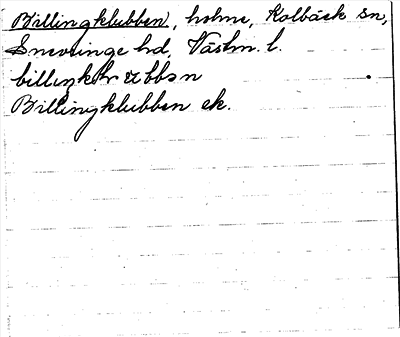 Billingklubben, holme, Kolbäck sn,
Snevringe hd, Västm. l.
Billingklubben ek.